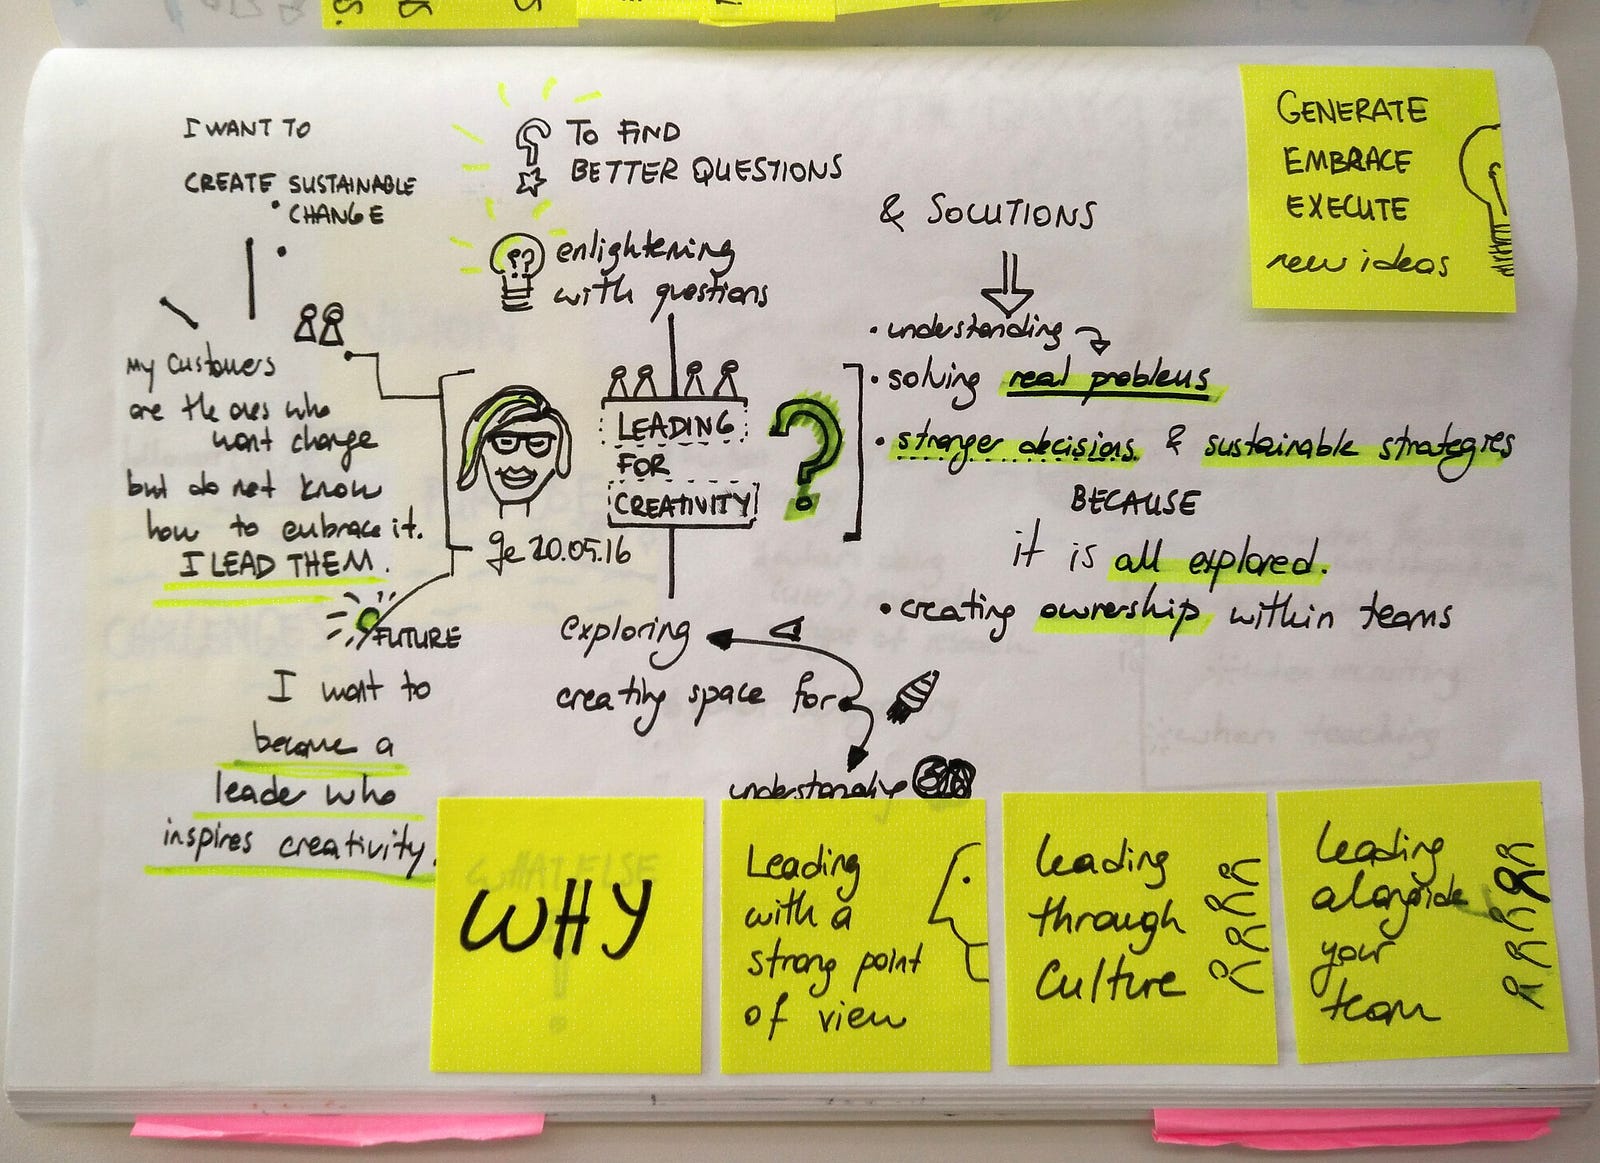 I WANT TO
CREATE SUSTAINABLE
CHANGE
TO FIND
BETTER QUESTIONS
enlightening
with questions
& SOLUTIONS
• understanding
• solving real problems
• stronger decisions & sustainable strategies
BECAUSE
it is all explored.
• creating ownership within teams
GENERATE
EMBRACE
EXECUTE
new ideas
My customers
are the ones who
want change
but do not know
how to embrace it.
I LEAD THEM.
LEADING
FOR
CREATIVITY
?
20.05.16
FUTURE
I want to
become a
leader who
inspires creativity.
exploring
creating space for
understanding
WHY
Leading
with a
strong point
of view
leading
through
Culture
leading
alongside
your
team